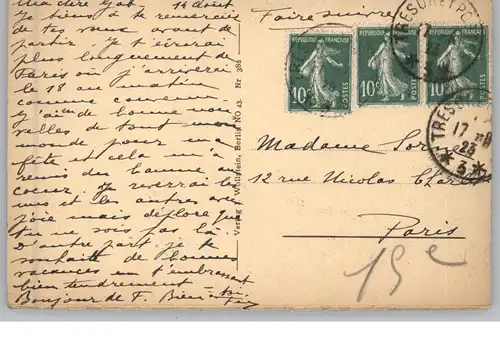 Ma chère Gab, 11 aout
J'y tiens à te remercier
de tes vœux avant de
partir. Je t'écrirai
plus longuement de
Paris où j'arriverai
le 18 au matin
comme convenu
J'ai de bonne nou
velles de tout mon
monde pour ma
fête et cela m'a
remis du baume au
coeur. Je reverrai les
uns et les autres avec
joie mais déplore que
tu ne sois pas là.
D'autre part je te
souhaite de bonnes
vacances en t'embrassant
bien tendrement
Bonjour de F. Bien à toi
Verlag Berlin NO 43. Nr. 382
Faire suivre
REPUBLIQUE FRANÇAISE
10c
POSTES
REPUBLIQUE FRANÇAISE
10c
POSTES
REPUBLIQUE FRANÇAISE
10c
POSTES
TRESOR ET POSTES
* 3 *
TRESOR ET
17
23
* 3 *
Madame
12 rue Nicolas
Paris
19e